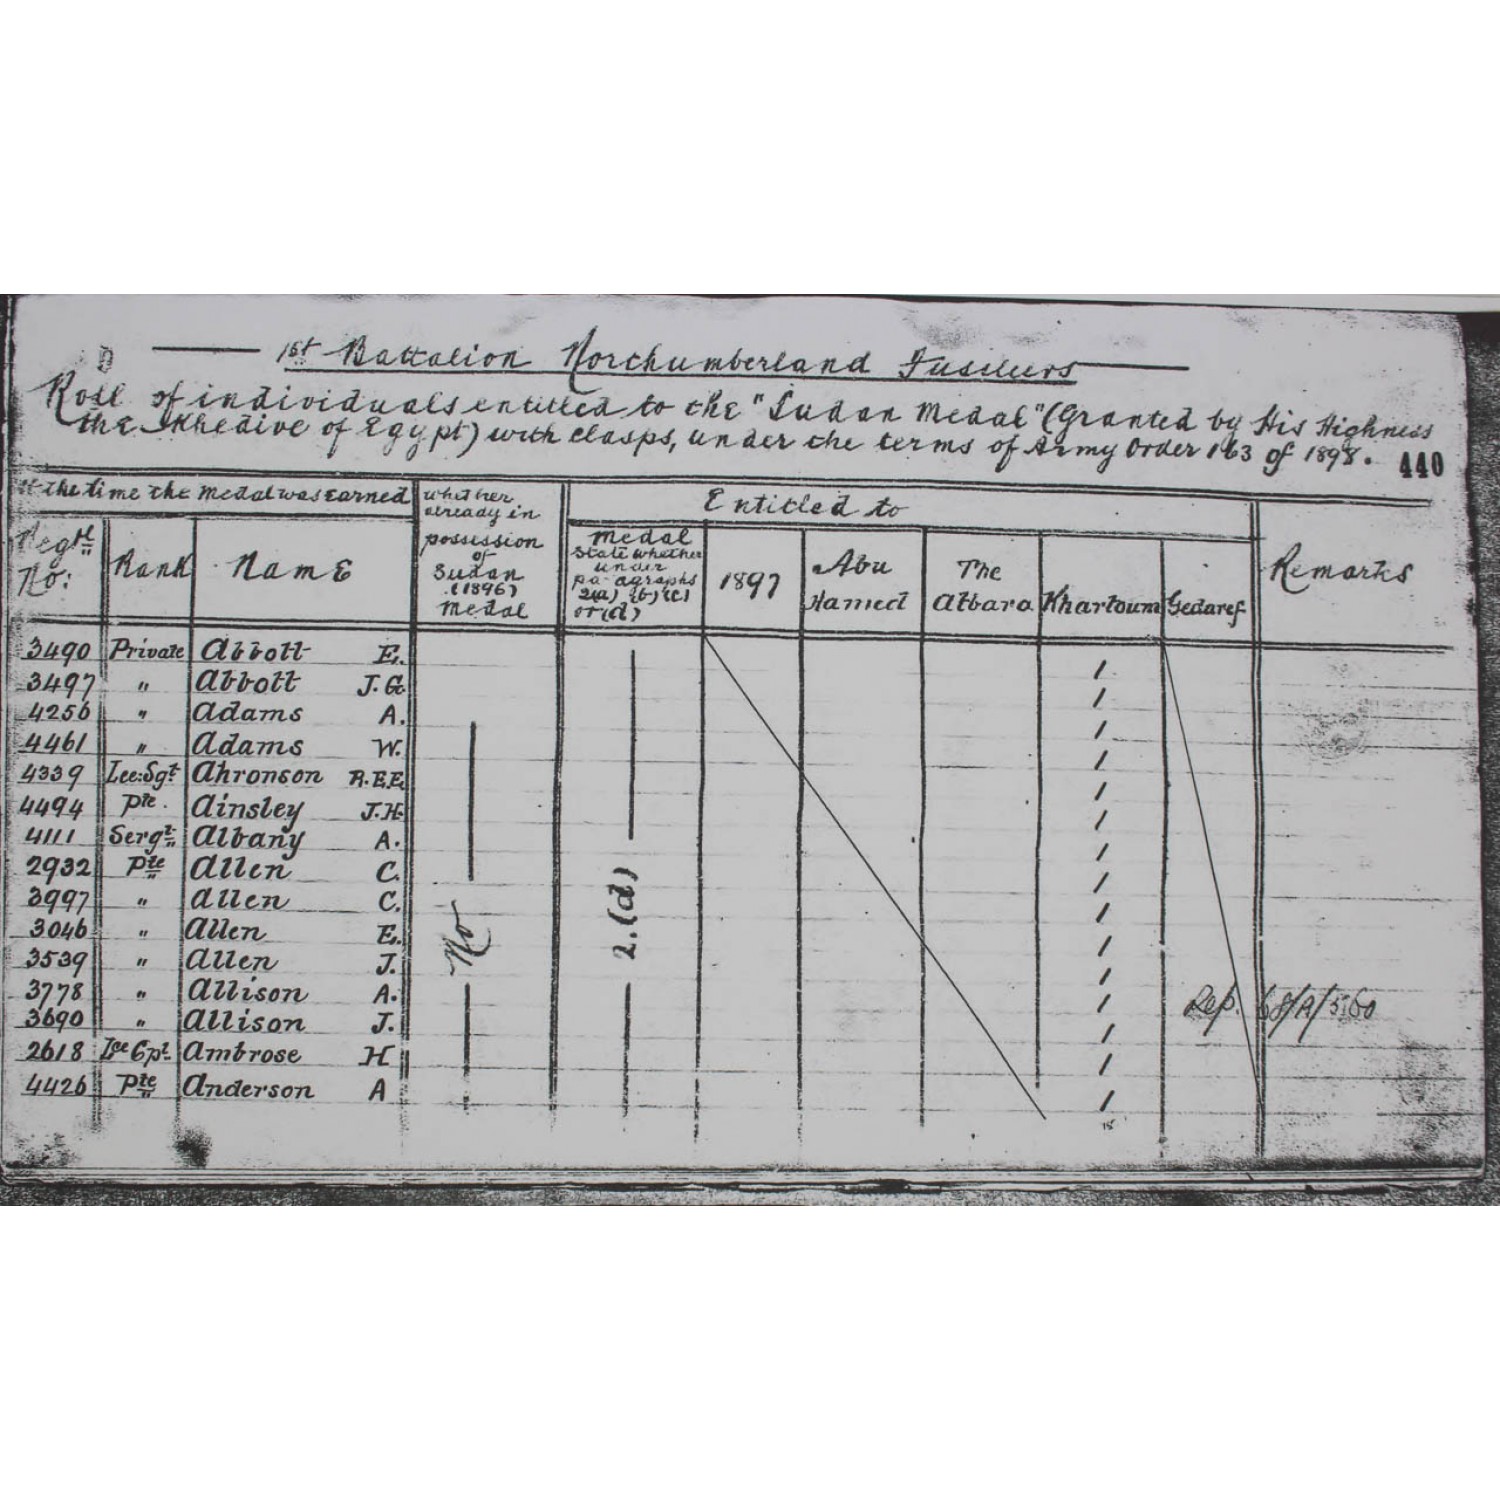 1st Battalion Northumberland Fusiliers
Roll of individuals entitled to the "Sudan Medal" (Granted by His Highness
the Khedive of Egypt) with clasps, under the terms of Army Order 163 of 1898. 440
At the time the Medal was Earned
Regtl No:
Rank
Name
whether already in possession of Sudan (1896) Medal
Entitled to
Medal State whether under paragraphs 2(a) (b) (c) or (d)
1897
Abu Hamed
The Atbara
Khartoum
Gedaref
Remarks
3490 Private Abbott E. /
3497 " Abbott J.G. /
4256 " Adams A. /
4461 " Adams W. /
4339 Lce:Sgt Ahronson R.E.E. /
4494 Pte. Ainsley J.H. /
4111 Sergt. Albany A. /
2932 Pte Allen C. /
3997 " Allen C. /
3046 " Allen E. /
3539 " Allen J. /
3778 " Allison A. / Rep. 68/A/560
3690 " Allison J. /
2618 Lce Cpl. Ambrose H /
4426 Pte Anderson A /
No
2.(d)
15